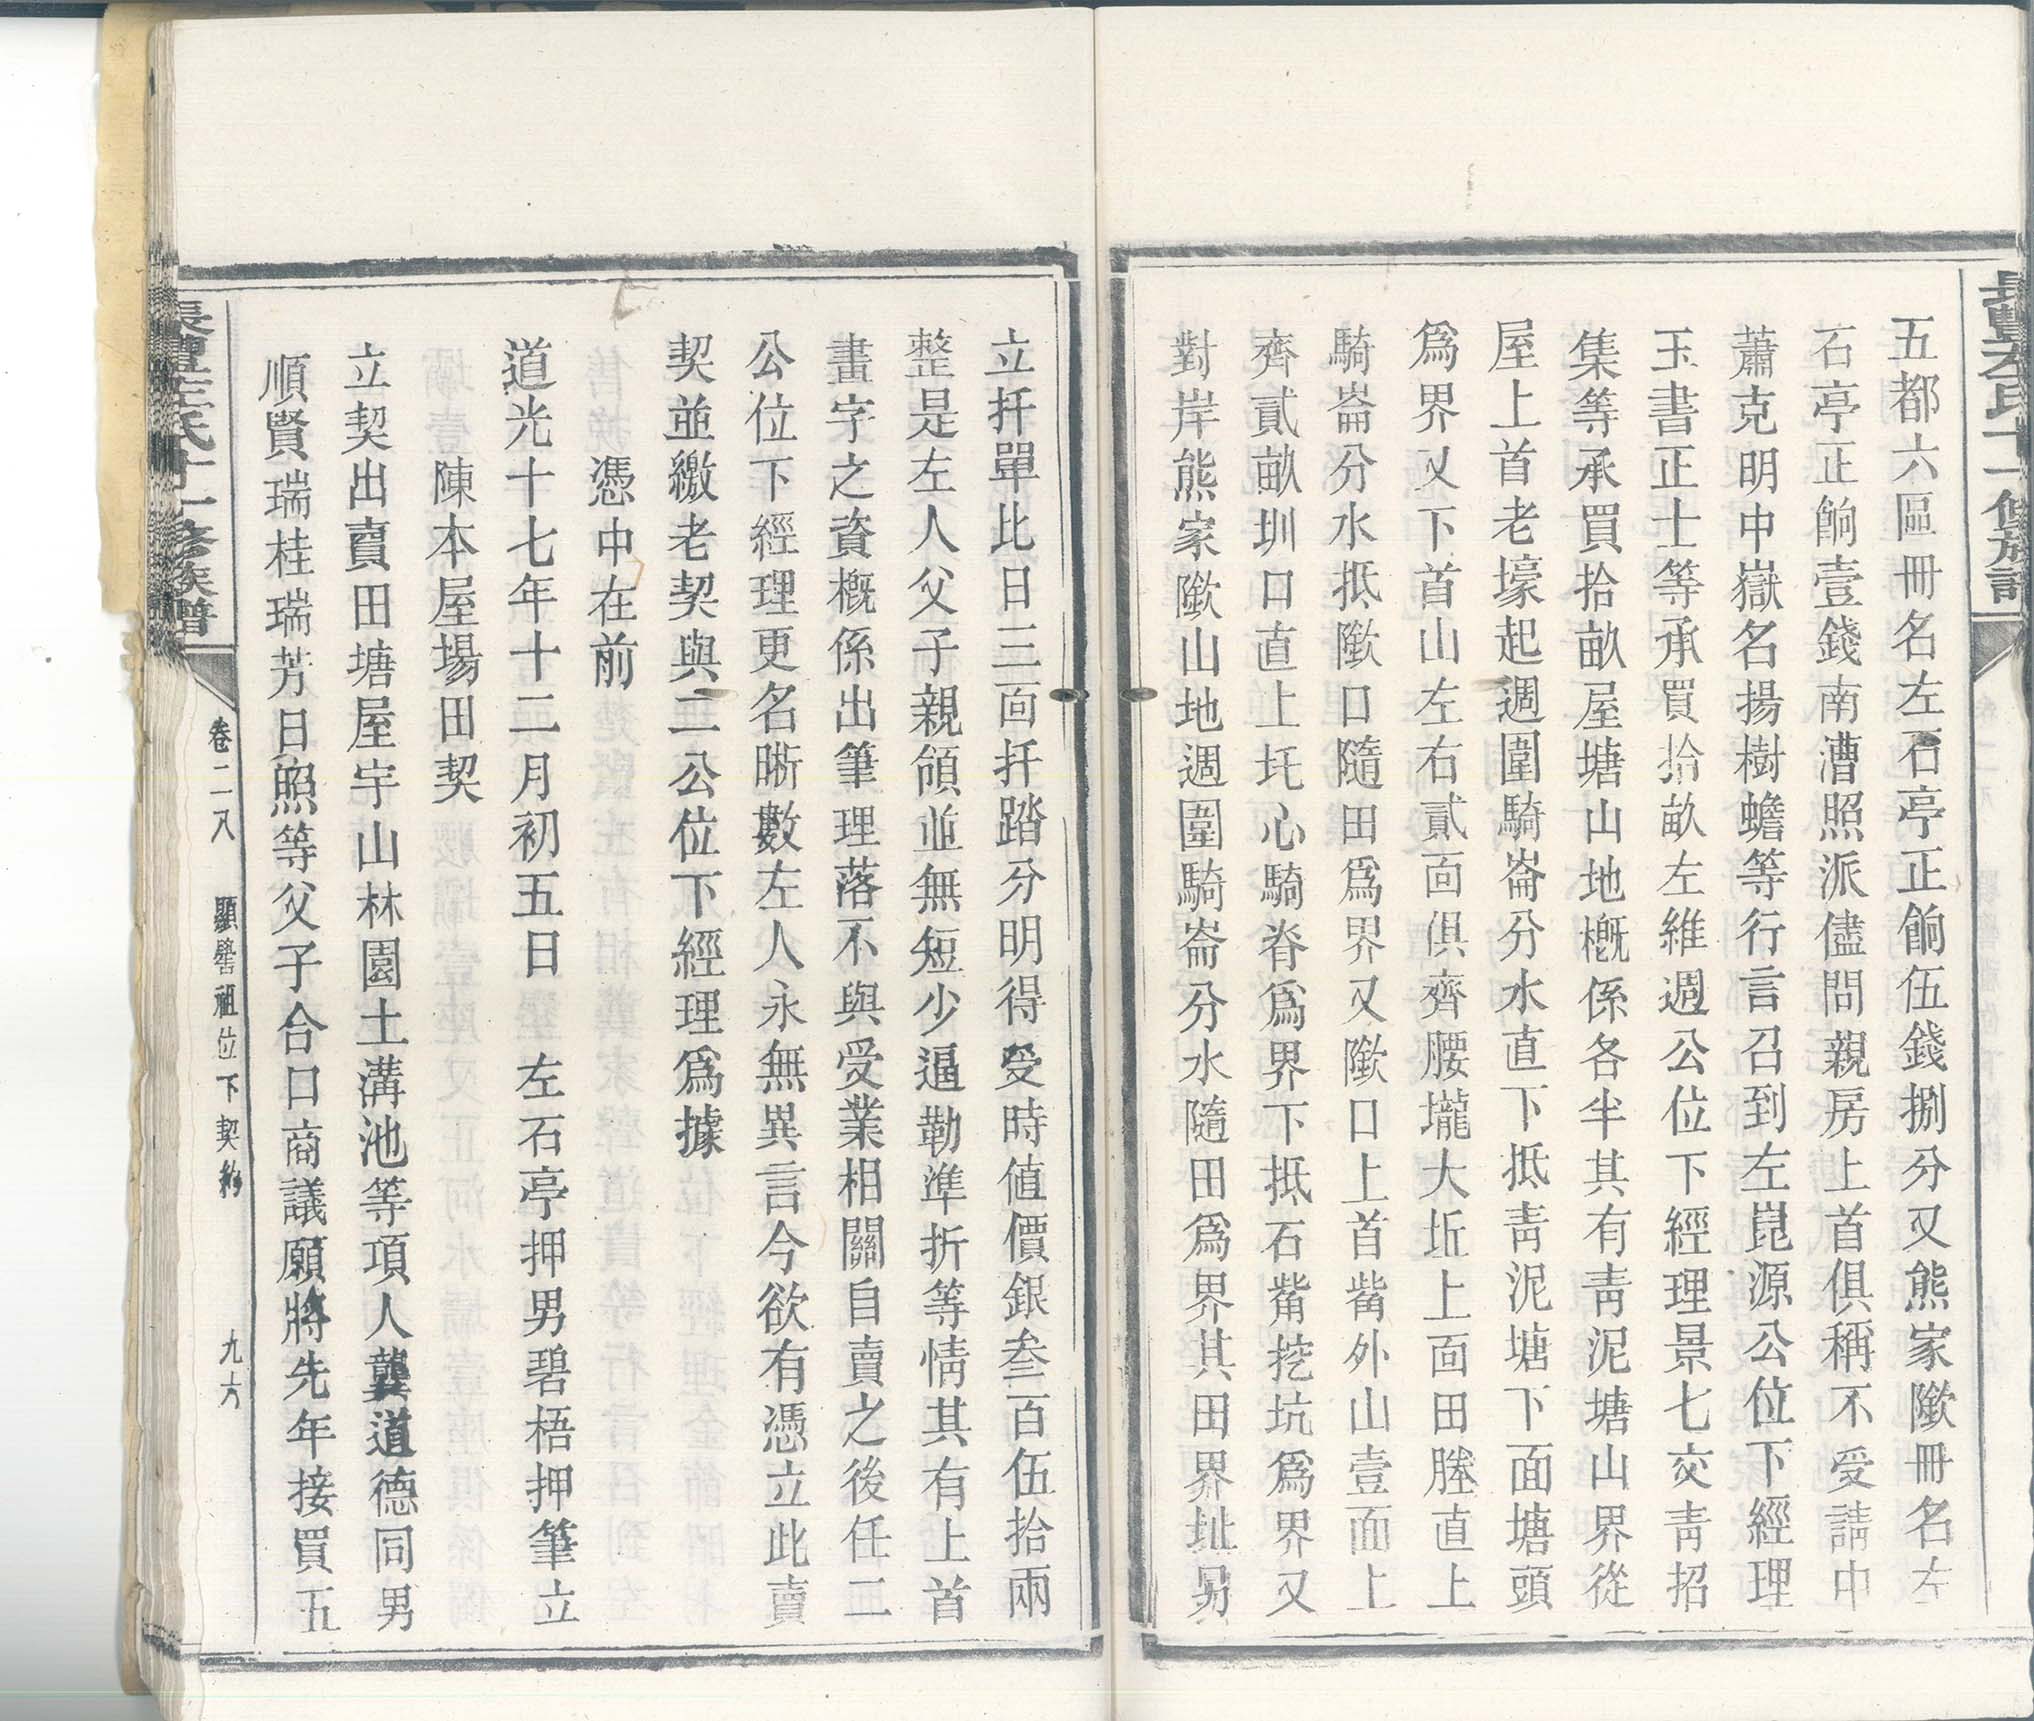 五都六區冊名左石亭正餉伍錢捌分又熊家隞冊名左
石亭正餉壹錢南漕照派儘問親房上首俱稱不受請中
蕭克明中嶽名揚樹蟾等行言召到左崑源公位下經理
玉書正士等承買拾畝左維週公位下經理景七交青招
集等承買拾畝屋塘山地概係各半其有靑泥塘山界從
屋上首老壕起週圍騎崙分水直下抵靑泥塘下面塘頭
爲界又下首山左右貳面俱齊腰壠大坵上面田塍直上
騎崙分水抵隞口隨田爲界又隞口上首觜外山壹面上
齊貳畝圳口直上圫心騎脊爲界下抵石觜挖坑爲界又
對岸熊家隞山地週圍騎崙分水隨田爲界其田界址另
立扦單比日三面扦踏分明得受時値價銀叁百伍拾兩
整是左人父子親領並無短少逼勒準折等情其有上首
畫字之資概係出筆理落不與受業相關自賣之後任二
公位下經理更名晰數左人永無異言今欲有憑立此賣
契並繳老契與二公位下經理爲據
憑中在前
道光十七年十二月初五日 左石亭押男碧梧押筆立
陳本屋場田契
立契出賣田塘屋宇山林園土溝池等項人龔道德同男
順賢瑞桂瑞芳日照等父子合口商議願將先年接買五
卷二八 顯謦祖位下契約 九六